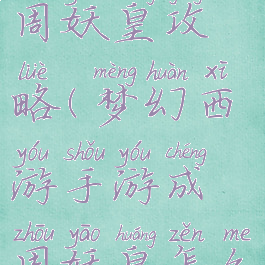 周妖皇攻
lüè mèng huàn xī
略(梦幻西
yóu shǒu yóu chéng
游手游成
zhōu yāo huáng zěn me
周妖皇怎么